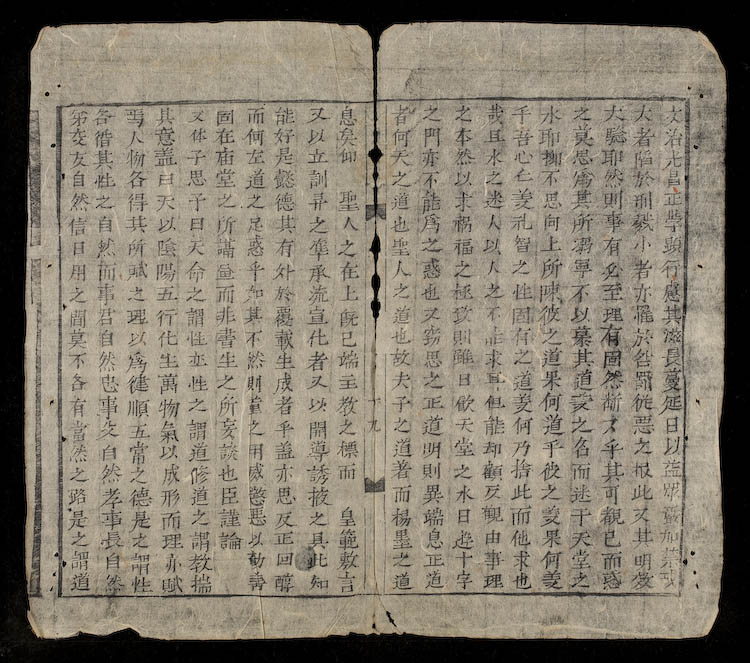 文治光昌正學顯行應其滋長蔓延日以益
大者陷於刑戮小者亦罹於咎罰從惡之報此又其明效
大驗耶然則事有必至理有固然斷乎其可觀已而惑
之莫思爲其所溺寧不以慕其道美之名而迷于天堂之
永耶抑不思向上所陳彼之道果何道乎彼之美果何美
乎吾心仁義礼智之性固有之道美何乃捨此而他求也
哉且水之迷人以人之不能求耳但能却顧反觀由事理
之本然以求禍福之極致則雖日飲天堂之水日遊十字
之門亦不能爲之惑也又竊思之正道明則異端息正道
者何天之道也聖人之道也故夫子之道著而楊墨之道
十九
息矣仰 聖人之在上旣已端主教之標而 皇範敷言
又以立訓弄之準承流宣化者又以開導誘掖之具此知
能好是懿德其有外於覆載生成者乎盖亦思反正回醇
而何左道之足惑乎如其不然則董之用威懲惡以勸善
固在庙堂之所講量而非書生之所妄談也臣謹論
又体子思子曰天命之謂性率性之謂道修道之謂教揣
其意盖曰天以陰陽五行化生萬物氣以成形而理亦賦
焉人物各得其所賦之理以爲健順五常之德是之謂性
各循其性之自然而事君自然忠事父自然孝事長自然
弟交友自然信日用之間莫不各有當然之路是之謂道